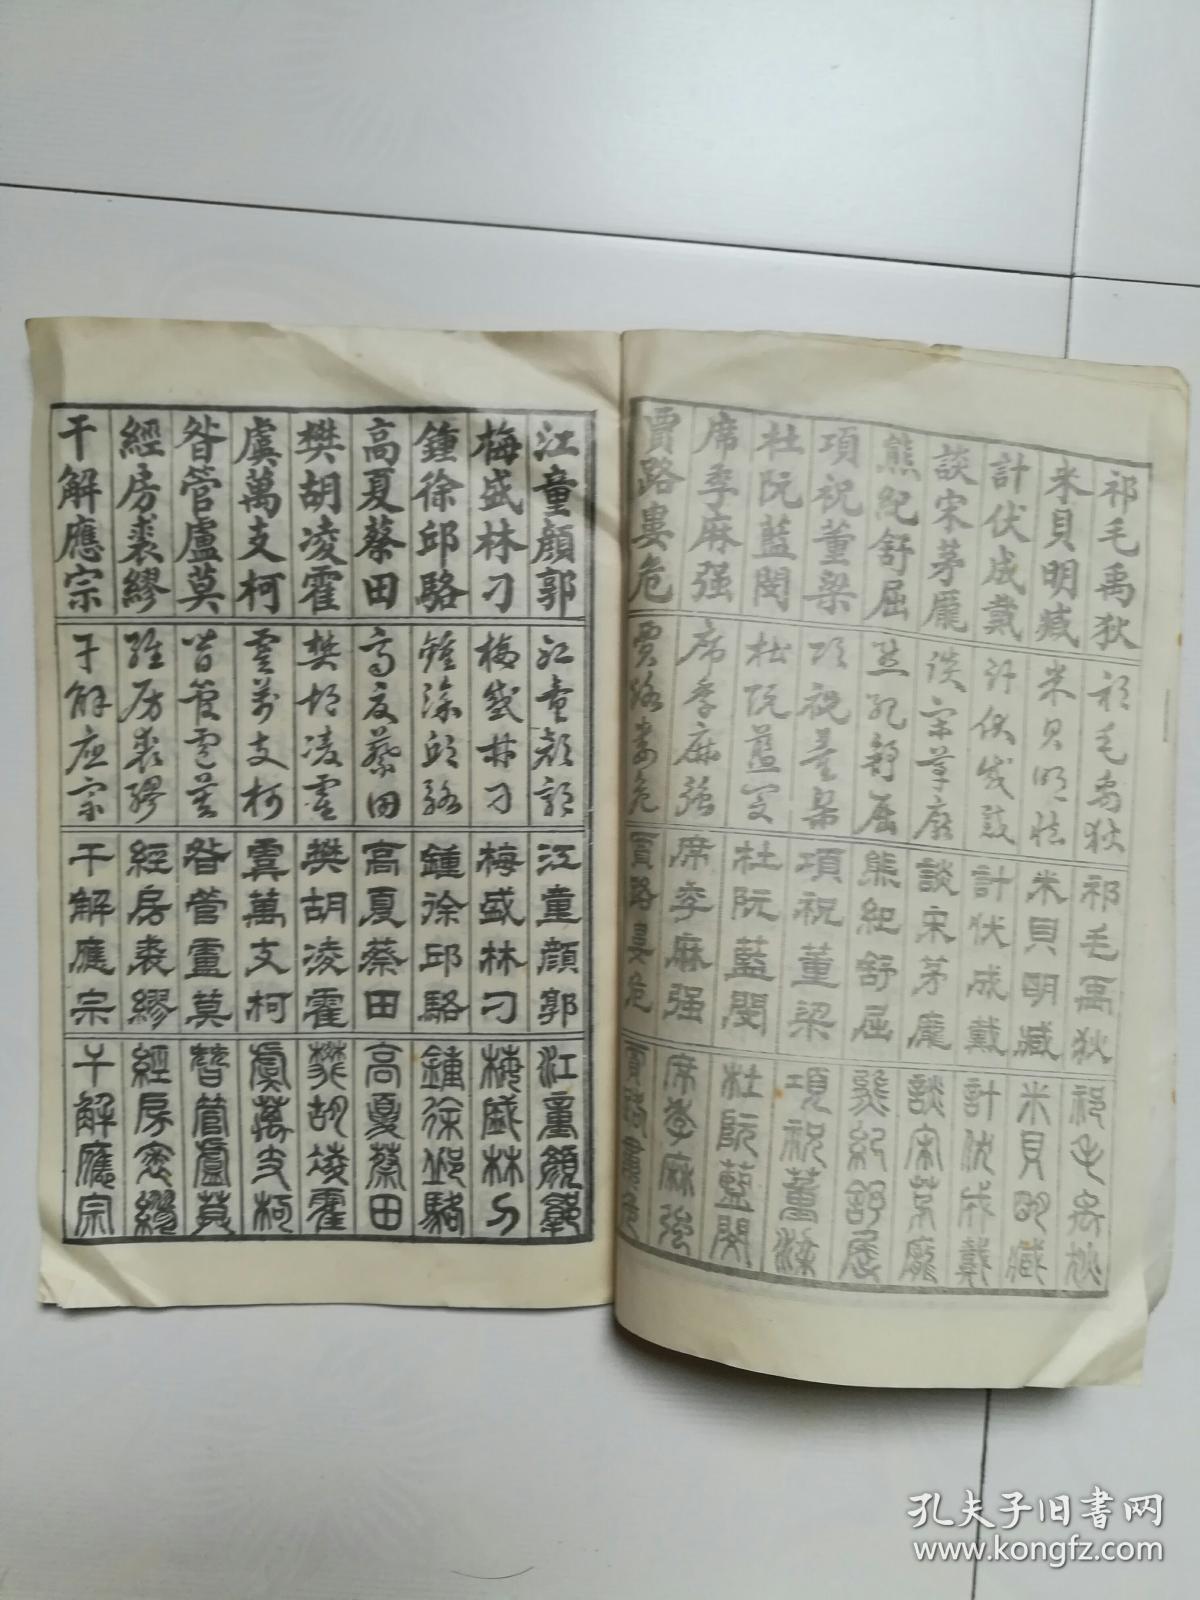 祁毛禹狄
米貝明臧
計伏成戴
談宋茅龐
熊紀舒屈
項祝董梁
杜阮藍閔
席季麻强
賈路婁危
祁毛禹狄
米貝明臧
計伏成戴
談宋茅龐
熊紀舒屈
項祝董梁
杜阮藍閔
席季麻强
賈路婁危
祁毛禹狄
米貝明臧
計伏成戴
談宋茅龐
熊紀舒屈
項祝董梁
杜阮藍閔
席季麻强
賈路婁危
祁毛禹狄
米貝明臧
計伏成戴
談宋茅龐
熊紀舒屈
項祝董梁
杜阮藍閔
席季麻强
賈路婁危
江童顏郭
梅盛林刁
鍾徐邱駱
高夏蔡田
樊胡凌霍
虞萬支柯
昝管盧莫
經房裘繆
干解應宗
江童顏郭
梅盛林刁
鍾徐邱駱
高夏蔡田
樊胡凌霍
虞萬支柯
昝管盧莫
經房裘繆
干解應宗
江童顏郭
梅盛林刁
鍾徐邱駱
高夏蔡田
樊胡凌霍
虞萬支柯
昝管盧莫
經房裘繆
干解應宗
江童顏郭
梅盛林刁
鍾徐邱駱
高夏蔡田
樊胡凌霍
虞萬支柯
昝管盧莫
經房裘繆
干解應宗
孔夫子旧书网
www.kongfz.com